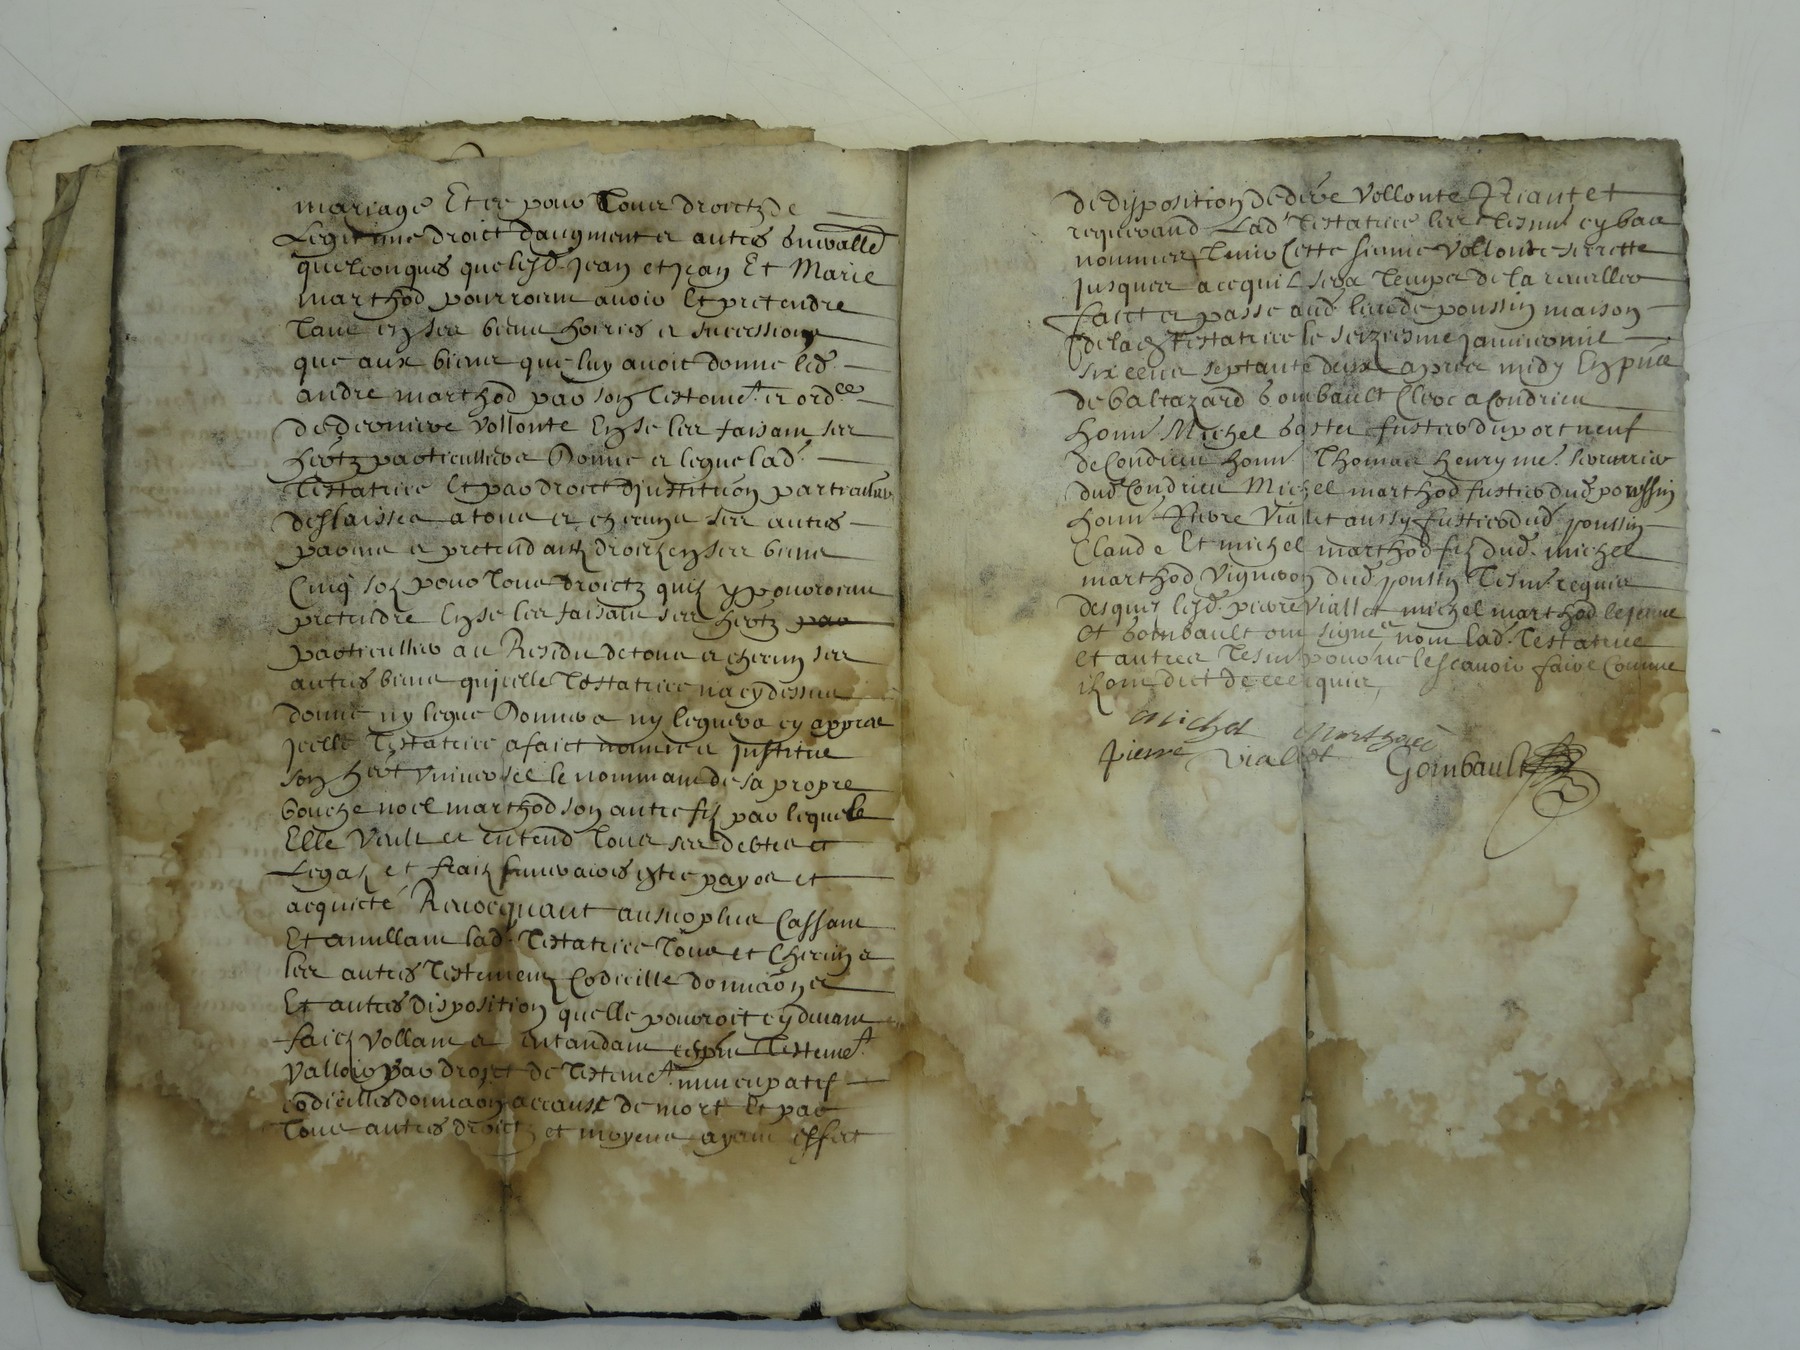 mariage Et ce pour tous droictz de
Legitime droict daugment et autres
quelconques que lesd. jean et jean Et Marie
marthod pourroient avoir Et pretendre
tant en ses biens hoiries et successions
que aux biens que luy avoit donne led.
andre marthod par son Testamet. et ordce
de derniere vollonte En se les faisant ses
hertz particulliers Donne et legue lad.
Testatrice Et par droict dinstituon particuliere
deslaisse a tous et chacung ses autres
parens et pretendantz droictz en ses biens
Cinq solz pour tous droictz quilz y pourroient
pretendre En se les faisant ses hertz par
particulliers au Residu de tous et checung ses
autres biens quicelle Testatrice na cy dessus
donne ny legue Donnera ny leguera cy appres
jcelle Testatrice a faict nomme et justitue
son hert universel le nommant de sa propre
bouche noel marthod son autre filz par lequel
Elle Veult et entend tous ses debtes et
Legatz et fraiz funeraires estre payes et
acquicté Revocquant au surplus Cassant
Et anullant lad. Testatrice tous et Checung
les autres Testementz Codicille donnaōn
Et autres disposition quelle pourroit cy devant
faict Vollant et entandant ce pnt Testemet.
Valloir par droict de Testemet. nuncupatif
codicilles donnaōn a cause de mort Et par
tous autres droictz et moyens ayant effect
de disposition de dere Vollonte Priant et
requerand Lad. Testatrice les tesmns cy bas
nommes tenir Cette sienne Vollonte serette
jusques a ce quil sera temps de la reveller
faict et passe aud. lieu de poussin maison
de lad. Testatrice le seiziesme janvier mil
six cens septante deux apres midy En pnce
de baltazard bombault Clerc a Condrieu
honn. Michel fustier du port neuf
de Condrieu honn. Thomas henry me.
dud. Condrieu Michel marthod fustier dud. poussin
honn. Pierre Vialet aussy fustier dud. poussin
Claude Et michel marthod filz dud. michel
marthod Vigneron dud. poussin tesmn. requis
desquelz lesd. pierre Viallet michel marthod le jeune
Et bombault ont signe et non lad. Testatrice
Et autres tesmn. pour ne le scavoir faire Comme
ilz ont dict de ce enquis
michel marthod
pierre vialet Gombault